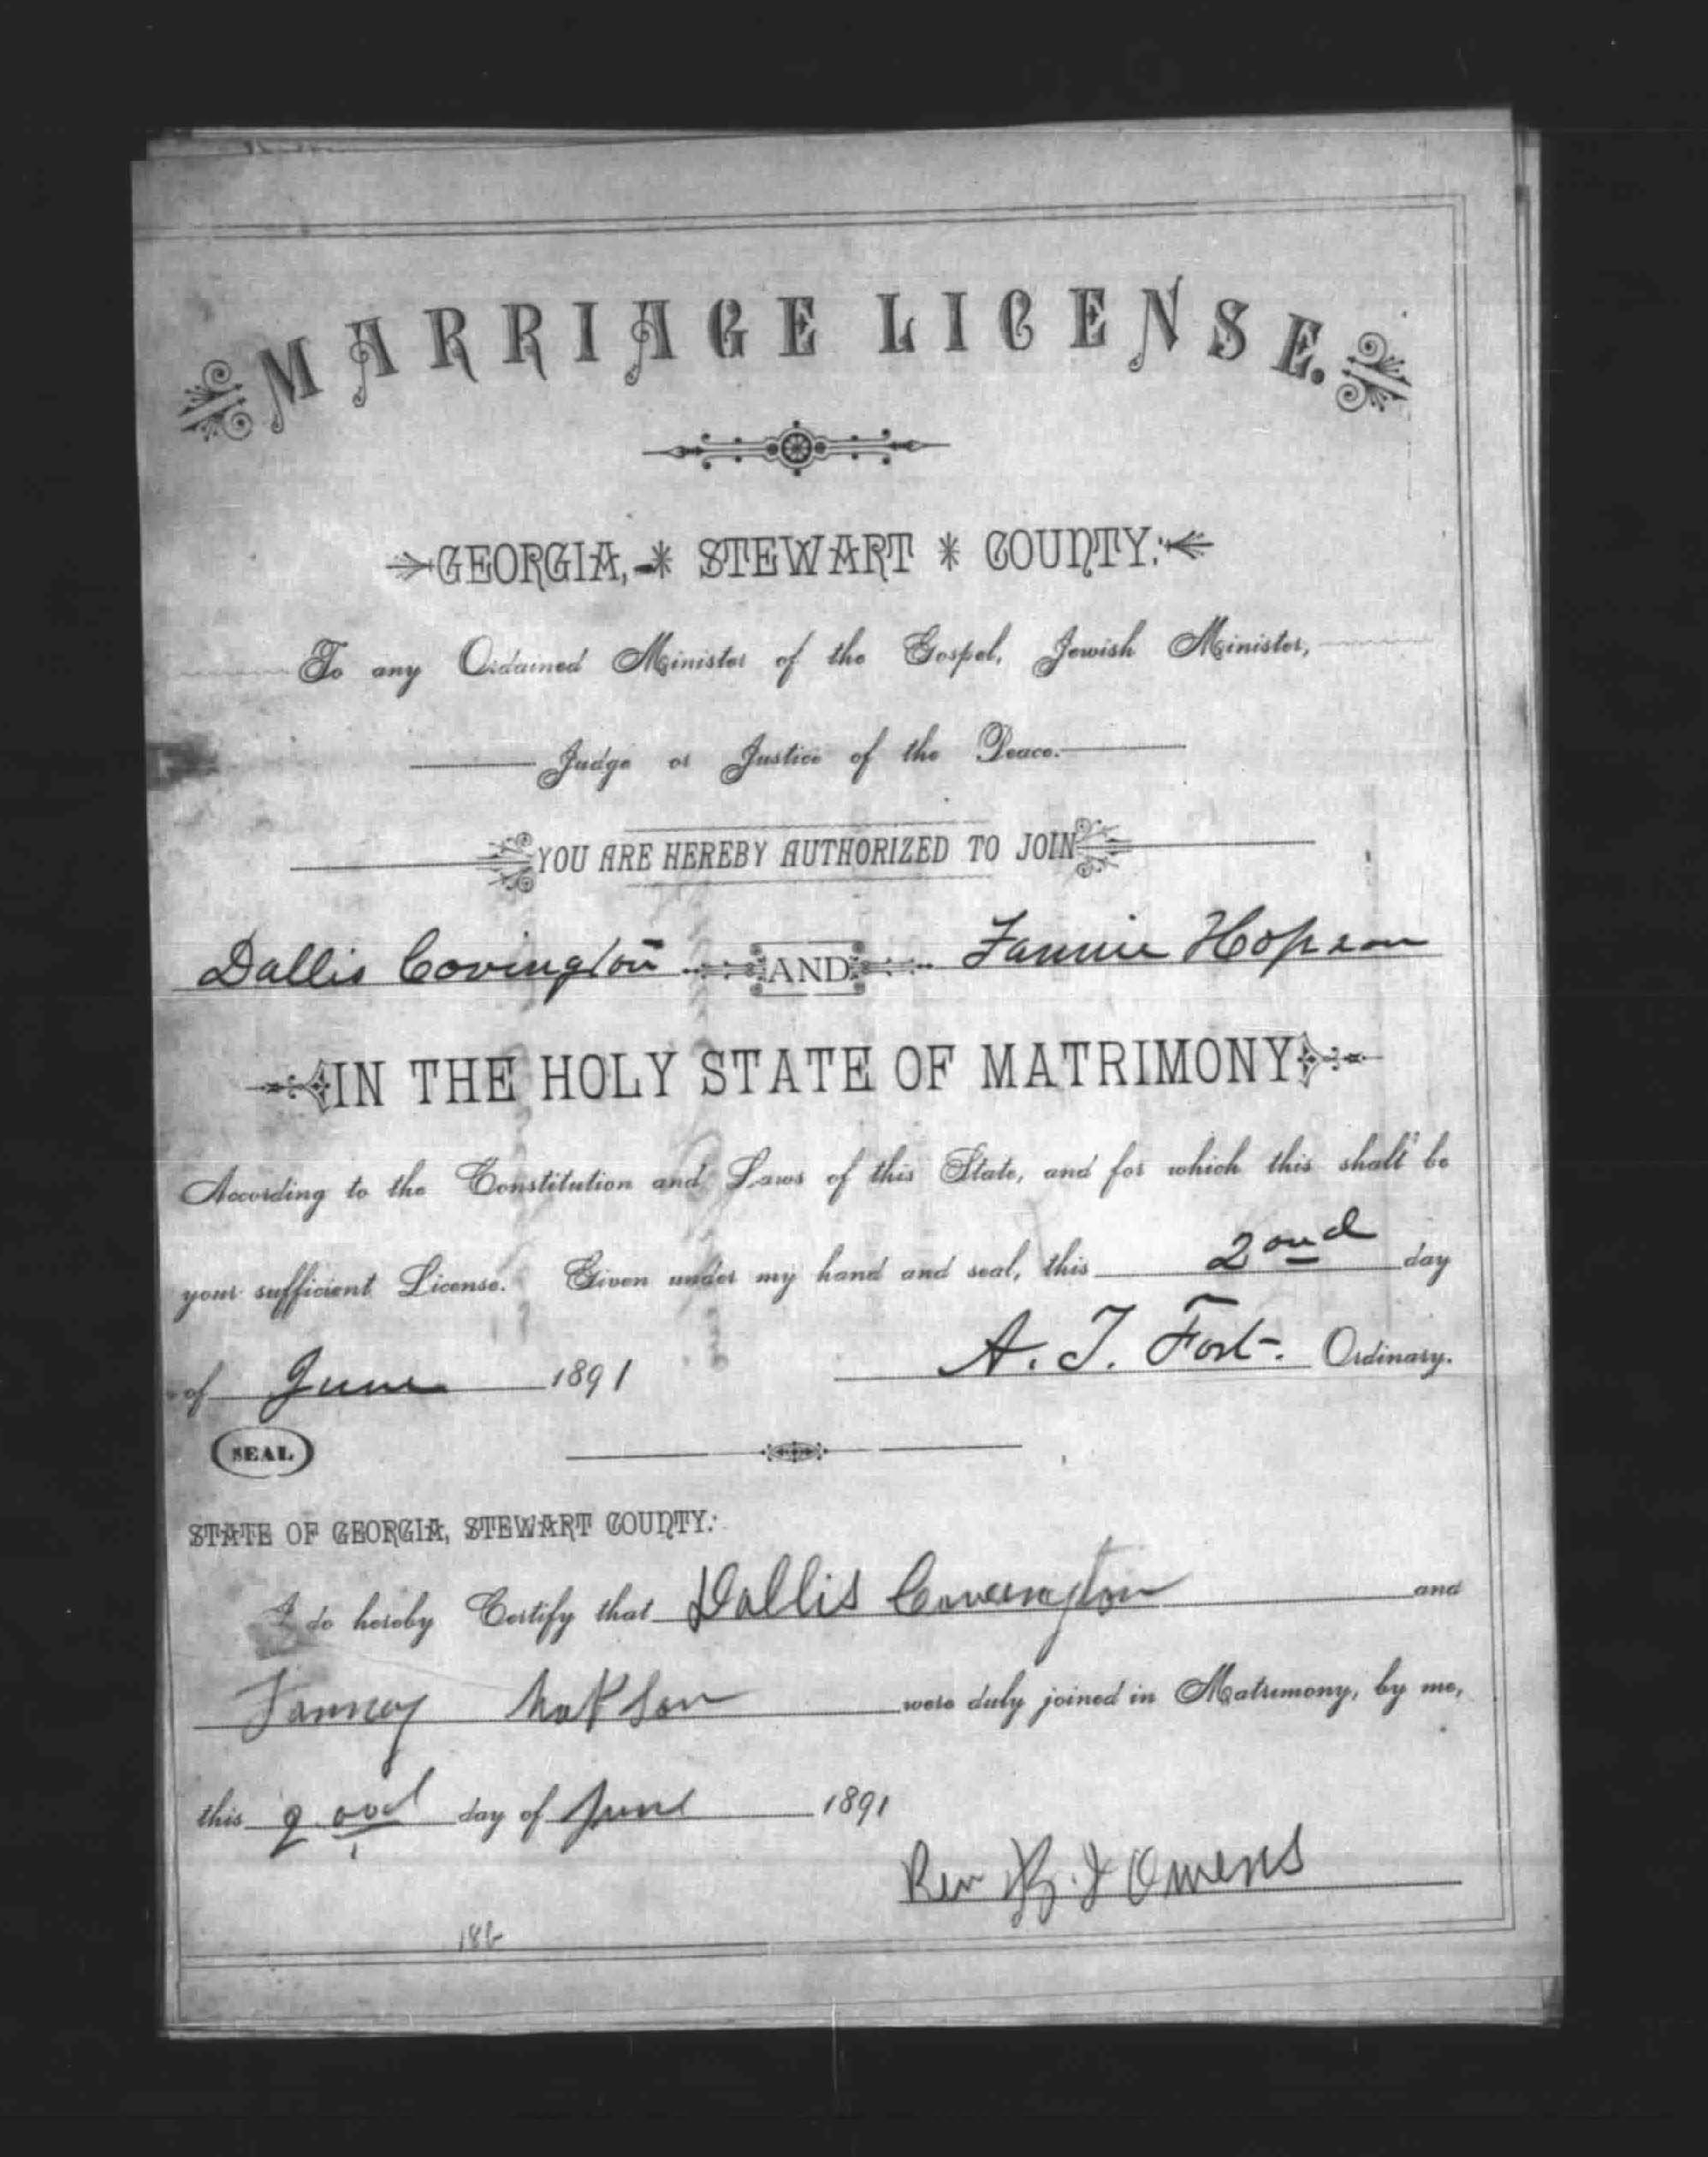 MARRIAGE LICENSE.
GEORGIA, * STEWART * COUNTY:
To any Ordained Minister of the Gospel, Jewish Minister,
Judge or Justice of the Peace.
YOU ARE HEREBY AUTHORIZED TO JOIN
Dallis Covington AND Fannie Hopson
IN THE HOLY STATE OF MATRIMONY
According to the Constitution and Laws of this State, and for which this shall be
your sufficient License. Given under my hand and seal, this 2ond day
of June 1891 A. T. Fort. Ordinary.
SEAL
STATE OF GEORGIA, STEWART COUNTY:
I do hereby Certify that Dallis Coveington and
Fanney were duly joined in Matrimony, by me,
this 2 ond day of June 1891
Rev J Owens